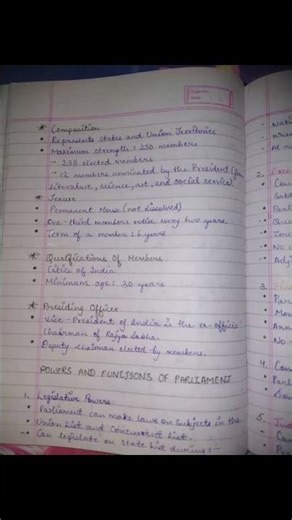 * Composition
• Represents states and Union Territories
• Maximum strength : 250 members
- 238 elected members
- 12 members nominated by the President (from
Literature, science, art, and social service)
* Tenure
• Permanent House (not dissolved)
• One-third members retire every two years
• Term of a member : 6 years
* Qualifications of Members
• Citizen of India
• Minimum age : 30 years
* Presiding Officer
• Vice-President of India is the ex-officio
Chairman of Rajya Sabha
• Deputy chairman elected by members.
POWERS AND FUNCTIONS OF PARLIAMENT
1. Legislative Powers
• Parliament can make laws on subjects in the
• Union list and concurrent list.
• Can legislate on State list during :-
2.
3.
4.
5.